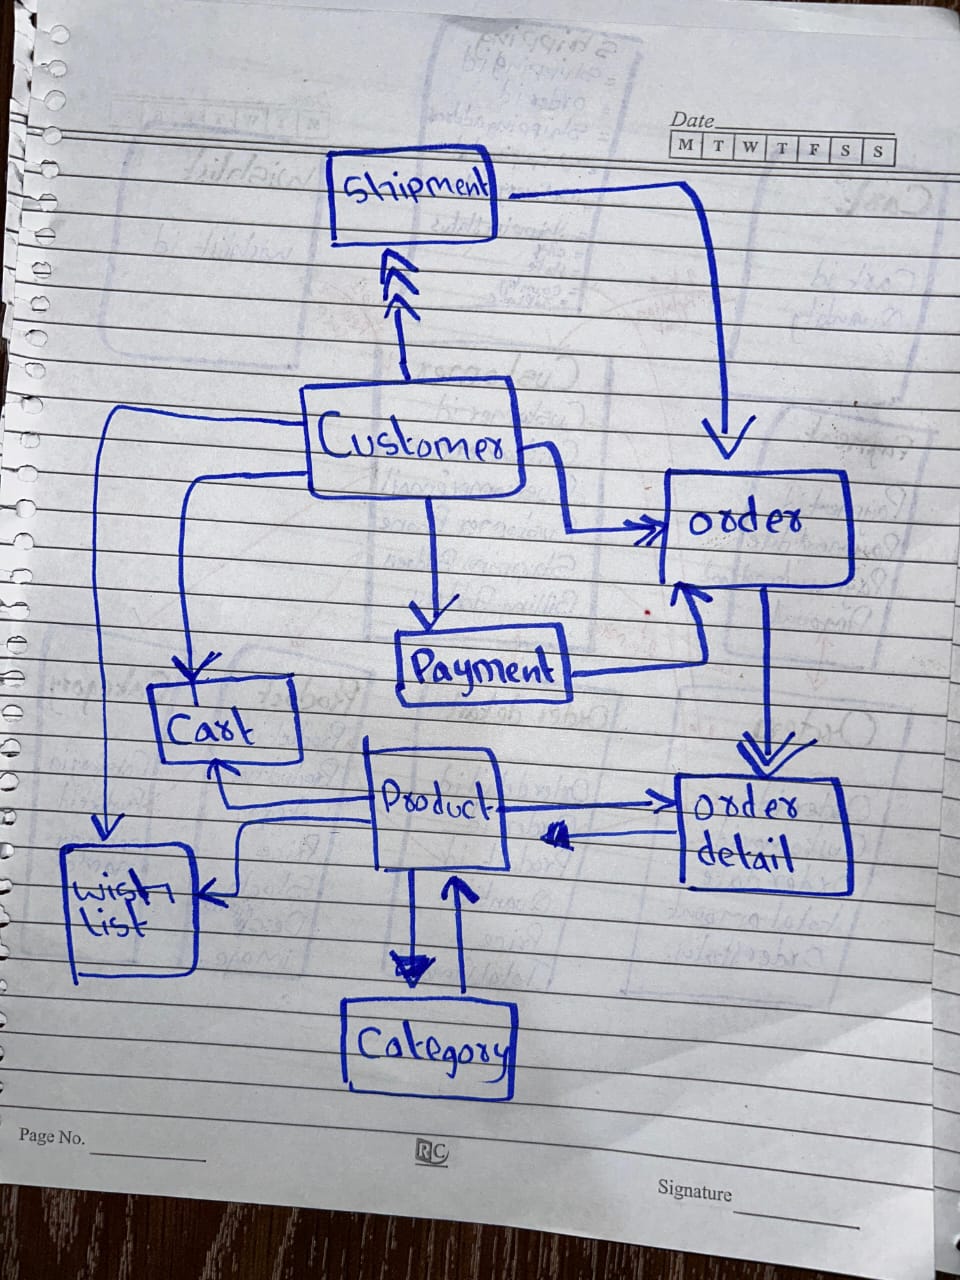 Date
M T W T F S S
Shipment
Customer
order
Payment
Cart
Product
order
detail
wish
list
Category
Page No.
RC
Signature